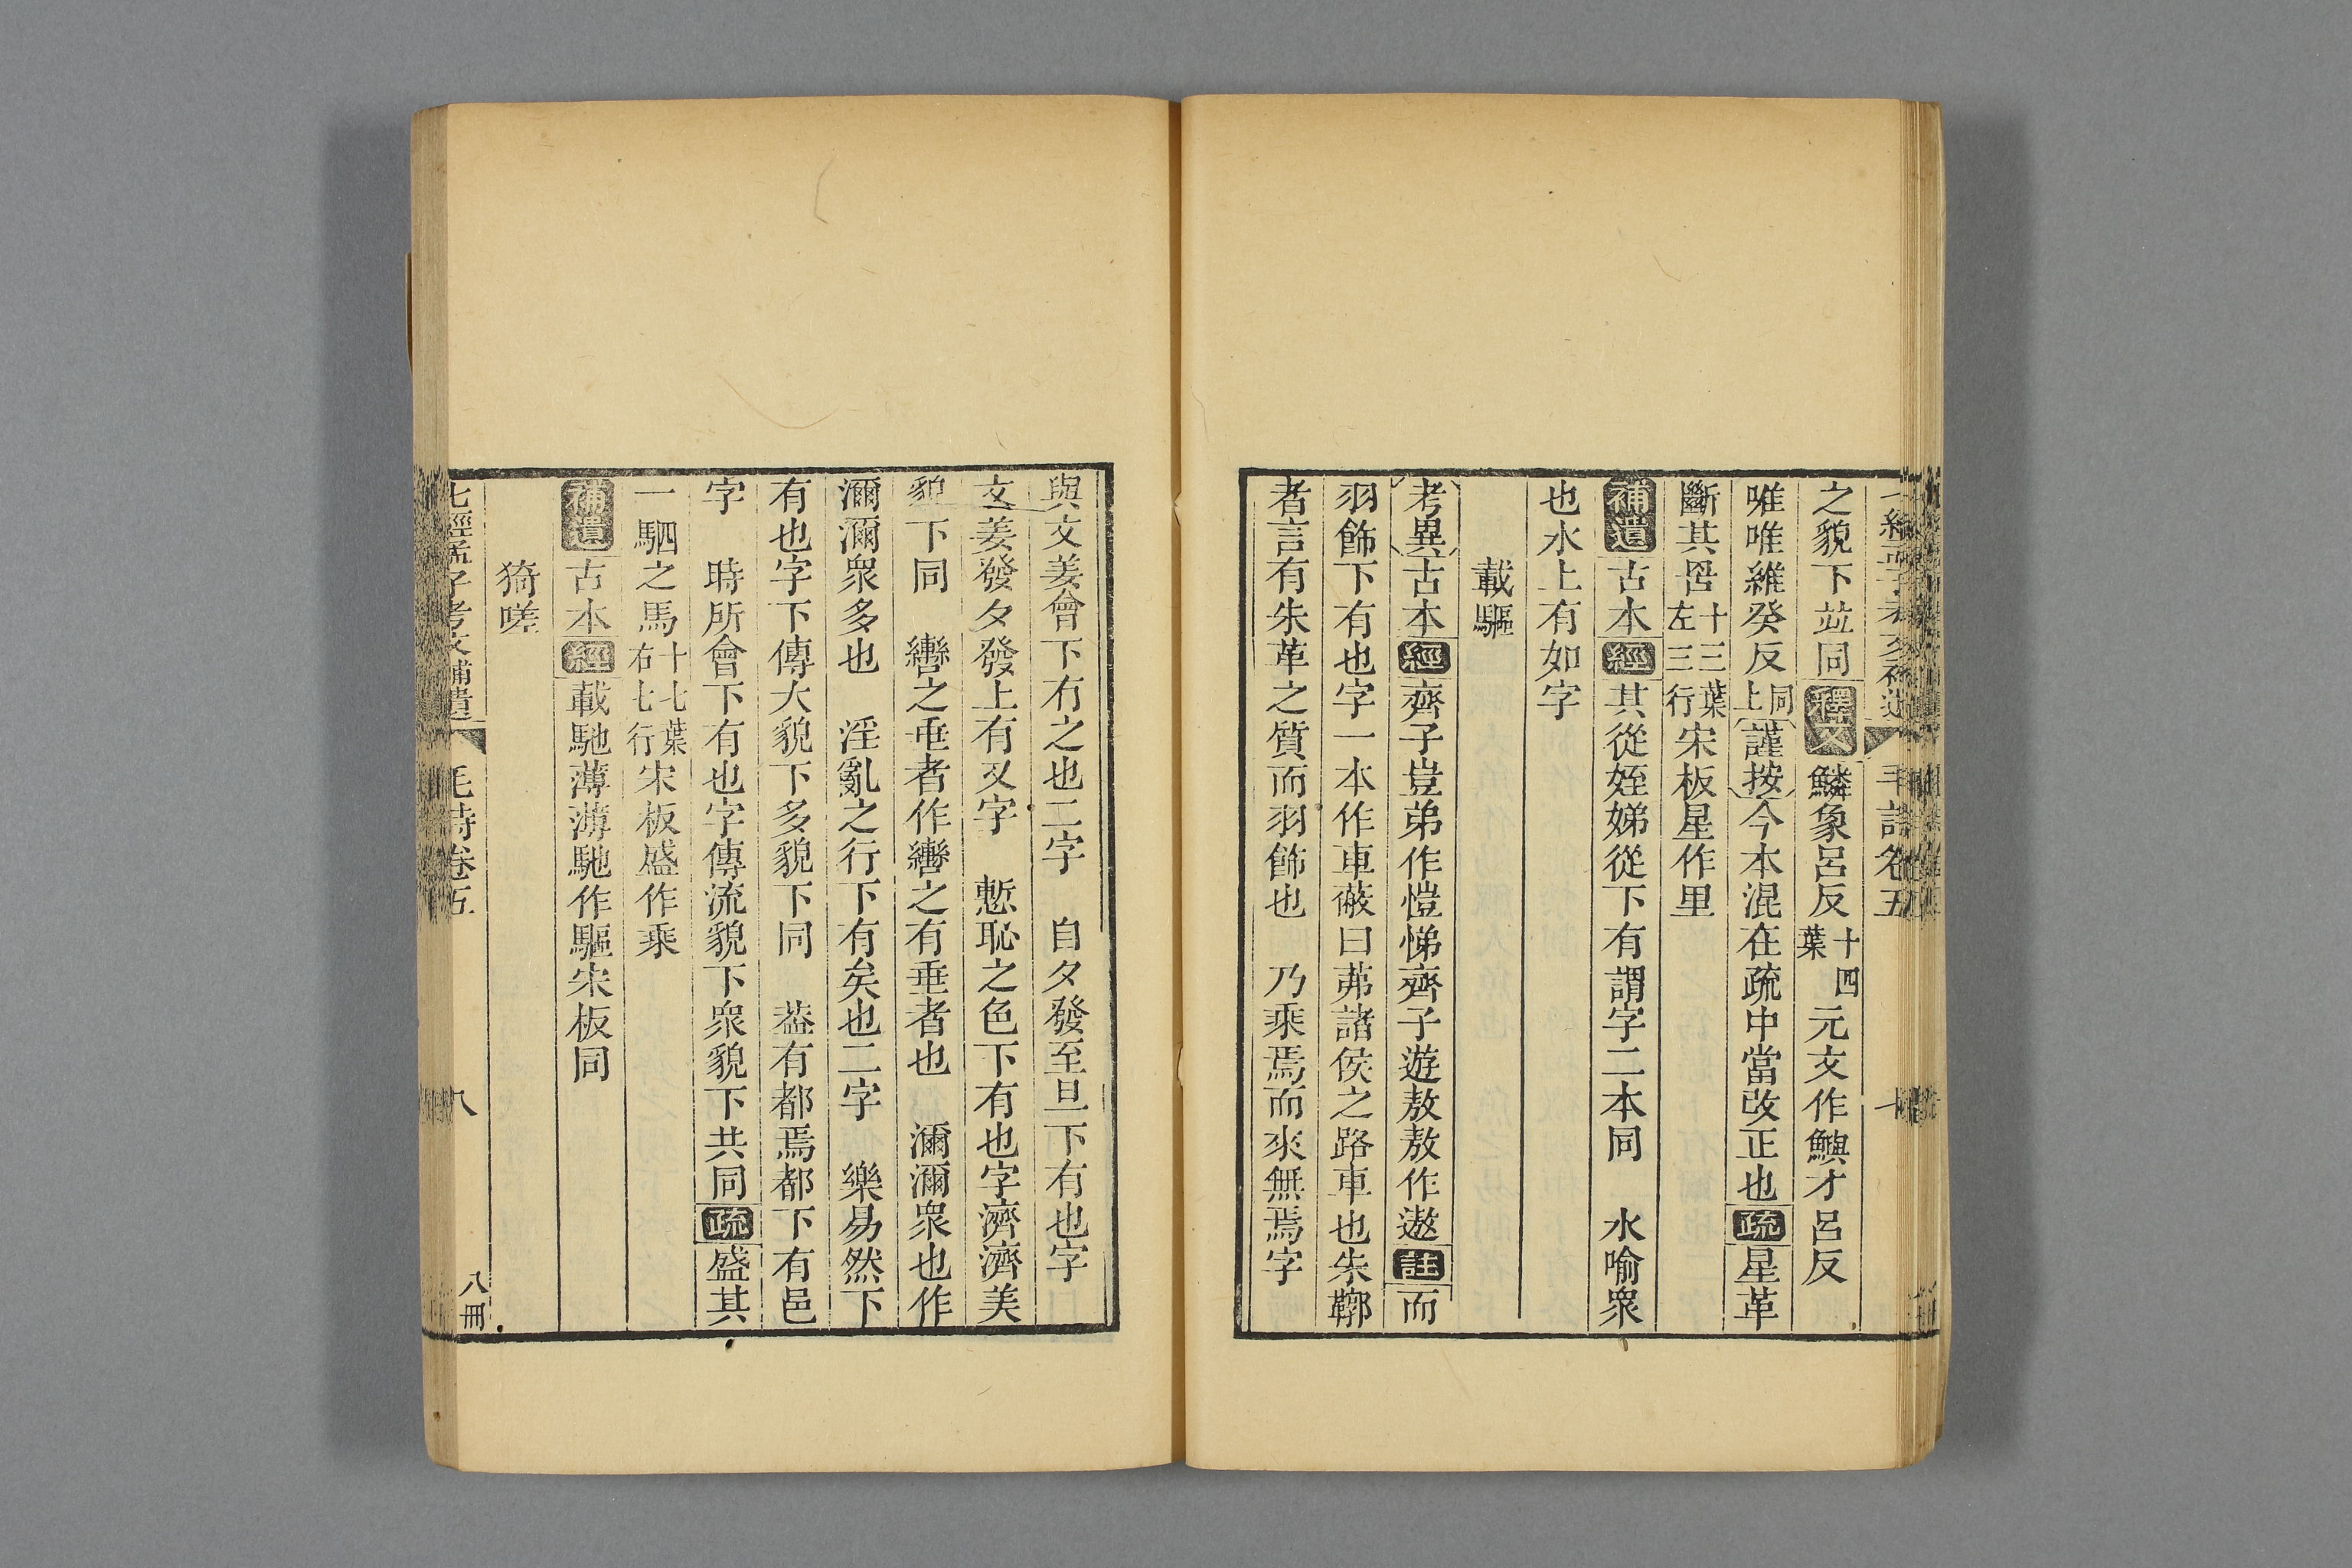 之貌下並同釋文鱮象呂反十四葉元文作鱮才呂反
唯唯維癸反同上謹按今本混在疏中當改正也疏星革
斷其罟十三葉左三行宋板星作里
補遺古本經其從姪娣從下有謂字二本同　水喻衆
也水上有如字
載驅
考異古本經齊子豈弟作愷悌齊子遊敖敖作遨註而
羽飾下有也字一本作車蔽曰茀諸侯之路車也朱鞹
者言有朱革之質而羽飾也　乃乘焉而來無焉字
與文姜會下有之也二字　自夕發至旦下有也字
文姜發夕發上有又字　慙恥之色下有也字濟濟美
貌下同　轡之垂者作轡之有垂者也　濔濔衆也作
濔濔衆多也　淫亂之行下有矣也二字　樂易然下
有也字下傳大貌下多貌下同　葢有都焉都下有邑
字　時所會下有也字傳流貌下衆貌下共同疏盛其
一駟之馬十七葉右七行宋板盛作乘
補遺古本經載馳薄薄馳作驅宋板同
猗嗟
七經孟子考文補遺　毛詩卷五　八　八冊